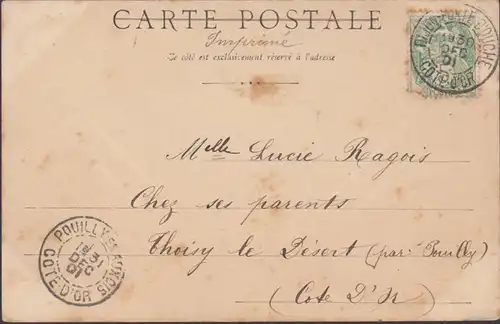 CARTE POSTALE
Imprimé
Ce côté est exclusivement réservé à l'adresse
BLIGNY-SUR-OUCHE
30
DEC
01
COTE-D'OR
Melle Lucie Ragois
Chez ses parents
Thoisy le Désert (par Pouilly)
(Cote D'Or)
POUILLY-EN-AUXOIS
31
DEC
01
COTE-D'OR